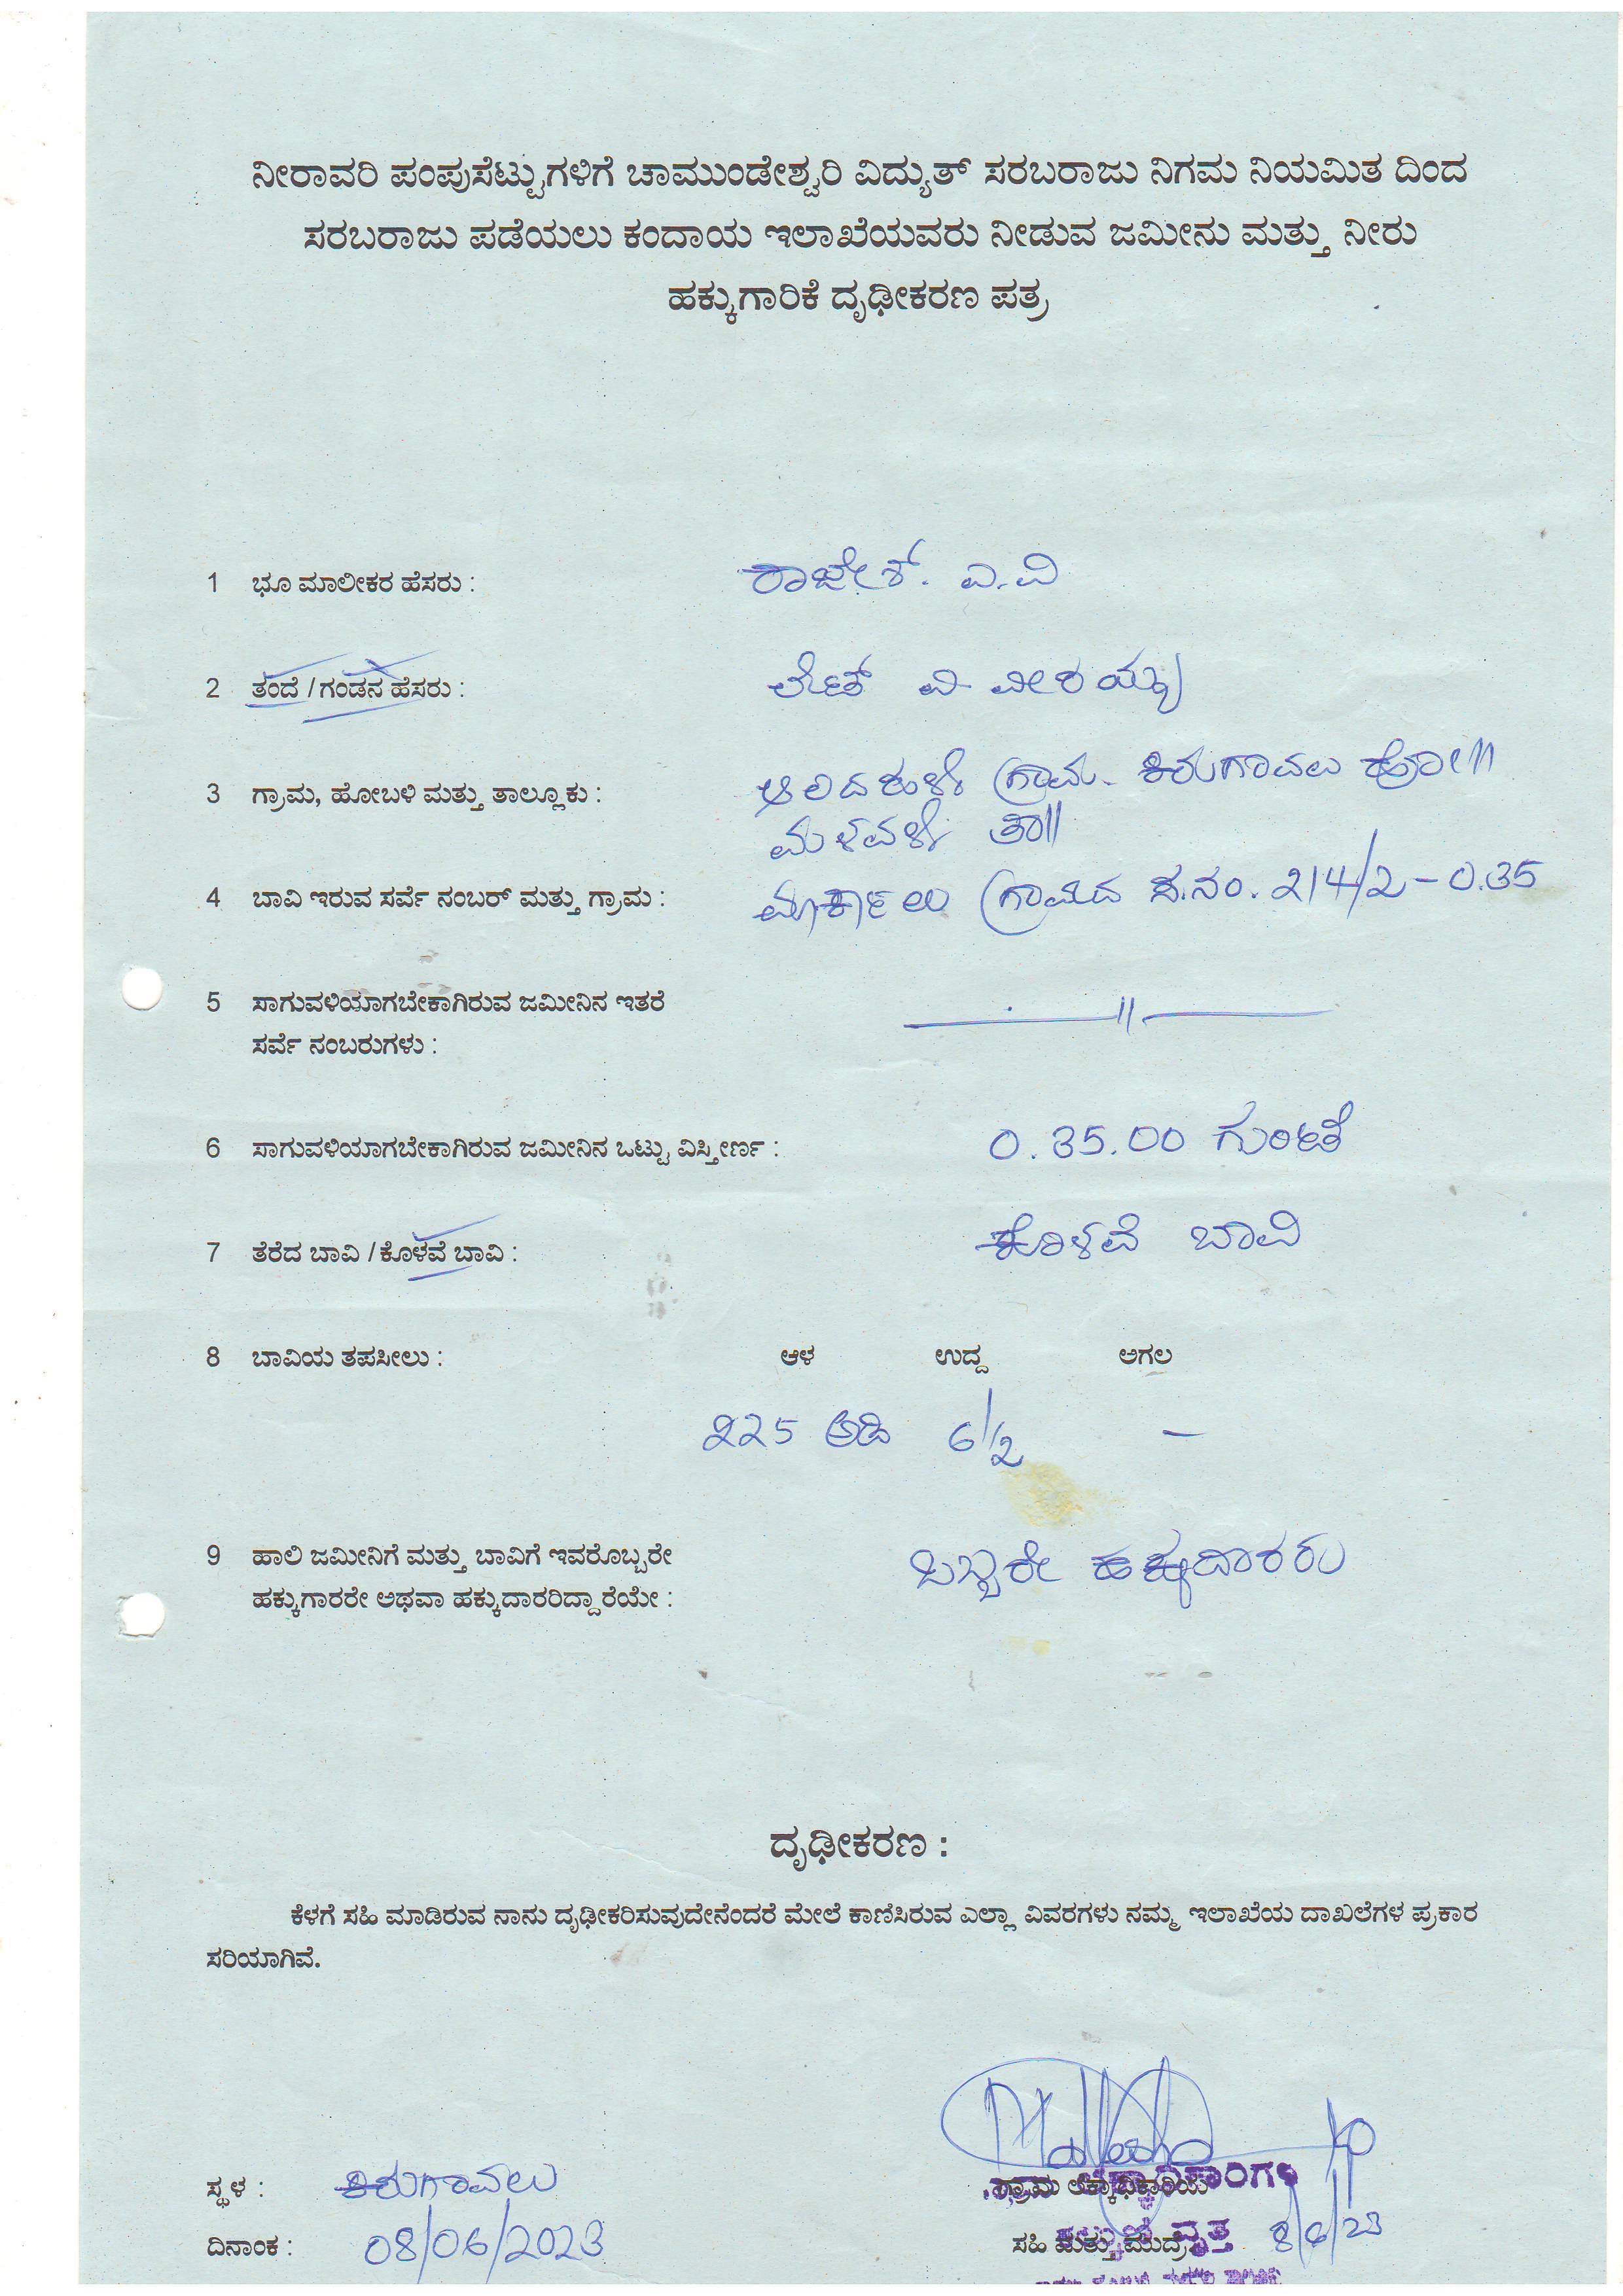 ನೀರಾವರಿ ಪಂಪುಸೆಟ್ಟುಗಳಿಗೆ ಚಾಮುಂಡೇಶ್ವರಿ ವಿದ್ಯುತ್ ಸರಬರಾಜು ನಿಗಮ ನಿಯಮಿತ ದಿಂದ
ಸರಬರಾಜು ಪಡೆಯಲು ಕಂದಾಯ ಇಲಾಖೆಯವರು ನೀಡುವ ಜಮೀನು ಮತ್ತು ನೀರು
ಹಕ್ಕುಗಾರಿಕೆ ದೃಢೀಕರಣ ಪತ್ರ
1 ಭೂ ಮಾಲೀಕರ ಹೆಸರು : ರಾಜೇಶ್. ಎ.ವಿ
2 ತಂದೆ / ಗಂಡನ ಹೆಸರು : ಲೇಟ್ ವಿ ವೀರಯ್ಯ
3 ಗ್ರಾಮ, ಹೋಬಳಿ ಮತ್ತು ತಾಲ್ಲೂಕು : ಗ್ರಾಮ. ಕಿರುಗಾವಲು ಹೋ||
ಮಳವಳ್ಳಿ ತಾ||
4 ಬಾವಿ ಇರುವ ಸರ್ವೆ ನಂಬರ್ ಮತ್ತು ಗ್ರಾಮ : ಗ್ರಾಮದ ಸ.ನಂ. 214/2 - 0.35
5 ಸಾಗುವಳಿಯಾಗಬೇಕಾಗಿರುವ ಜಮೀನಿನ ಇತರೆ —॥—
ಸರ್ವೆ ನಂಬರುಗಳು :
6 ಸಾಗುವಳಿಯಾಗಬೇಕಾಗಿರುವ ಜಮೀನಿನ ಒಟ್ಟು ವಿಸ್ತೀರ್ಣ : 0.35.00 ಗುಂಟೆ
7 ತೆರೆದ ಬಾವಿ / ಕೊಳವೆ ಬಾವಿ : ಕೊಳವೆ ಬಾವಿ
8 ಬಾವಿಯ ತಪಸೀಲು : ಆಳ ಉದ್ದ ಅಗಲ
225 ಅಡಿ 6 1/2 –
9 ಹಾಲಿ ಜಮೀನಿಗೆ ಮತ್ತು ಬಾವಿಗೆ ಇವರೊಬ್ಬರೇ ಒಬ್ಬರೇ ಹಕ್ಕುದಾರರು
ಹಕ್ಕುಗಾರರೇ ಅಥವಾ ಹಕ್ಕುದಾರರಿದ್ದಾರೆಯೇ :
ದೃಢೀಕರಣ :
ಕೆಳಗೆ ಸಹಿ ಮಾಡಿರುವ ನಾನು ದೃಢೀಕರಿಸುವುದೇನೆಂದರೆ ಮೇಲೆ ಕಾಣಿಸಿರುವ ಎಲ್ಲಾ ವಿವರಗಳು ನಮ್ಮ ಇಲಾಖೆಯ ದಾಖಲೆಗಳ ಪ್ರಕಾರ
ಸರಿಯಾಗಿವೆ.
ಸ್ಥಳ : ಕಿರುಗಾವಲು
ದಿನಾಂಕ : 08/06/2023 ಸಹಿ ಮತ್ತು ಮುದ್ರೆ ವೃತ್ತ 8/6/23